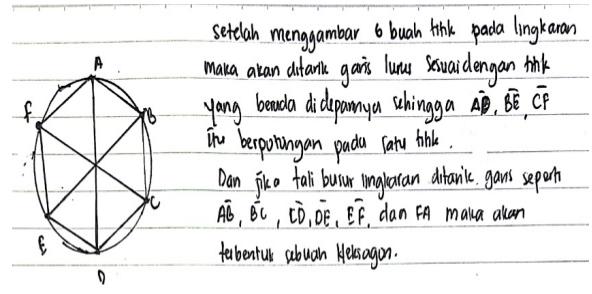 setelah menggambar 6 buah titik pada lingkaran
maka akan ditarik garis lurus sesuai dengan titik
yang berada didepannya sehingga A̅D̅, B̅E̅, C̅F̅
itu berpotongan pada satu titik.
Dan jika tali busur lingkaran ditarik garis seperti
A̅B̅, B̅C̅, C̅D̅, D̅E̅, E̅F̅, dan FA maka akan
terbentuk sebuah Heksagon.
A
F
B
C
E
D